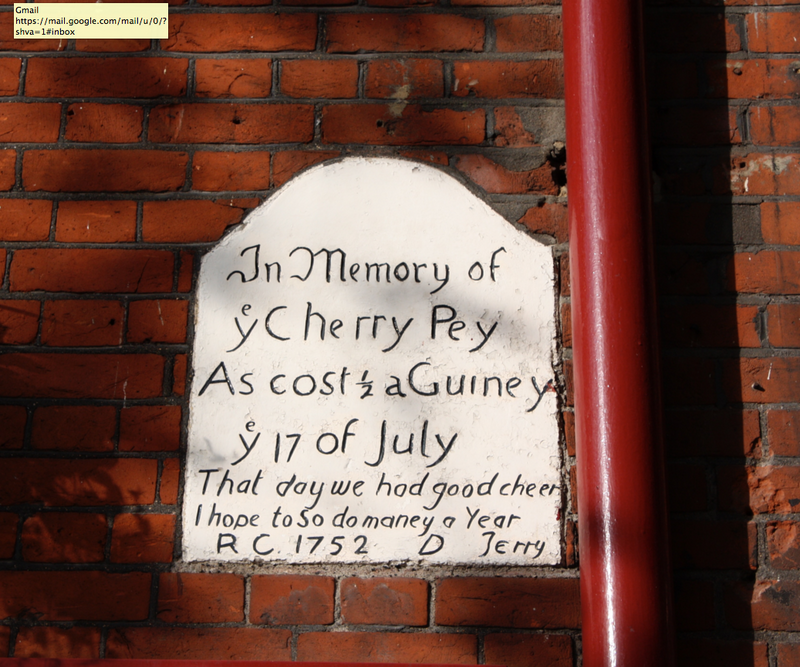 Gmail
https://mail.google.com/mail/u/0/?
shva=1#inbox
In Memory of
yͤ Cherry Pey
As cost ½ a Guiney
yͤ 17 of July
That day we had good cheer
I hope to So do maney a Year
R C 1752 D Terry